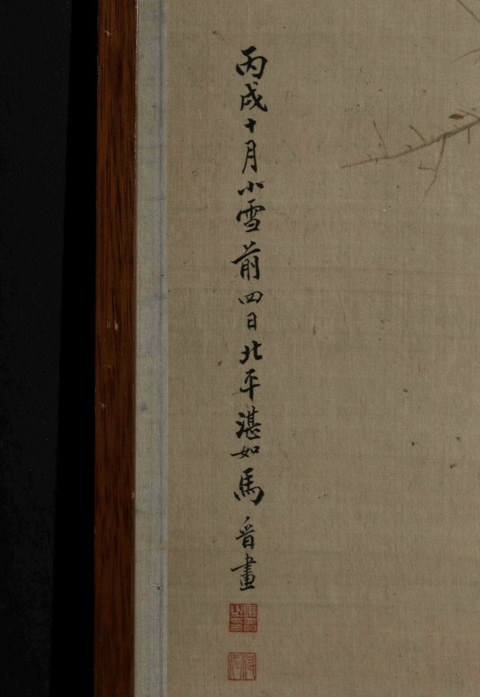 丙戌十月小雪前四日北平湛如馬晋畫